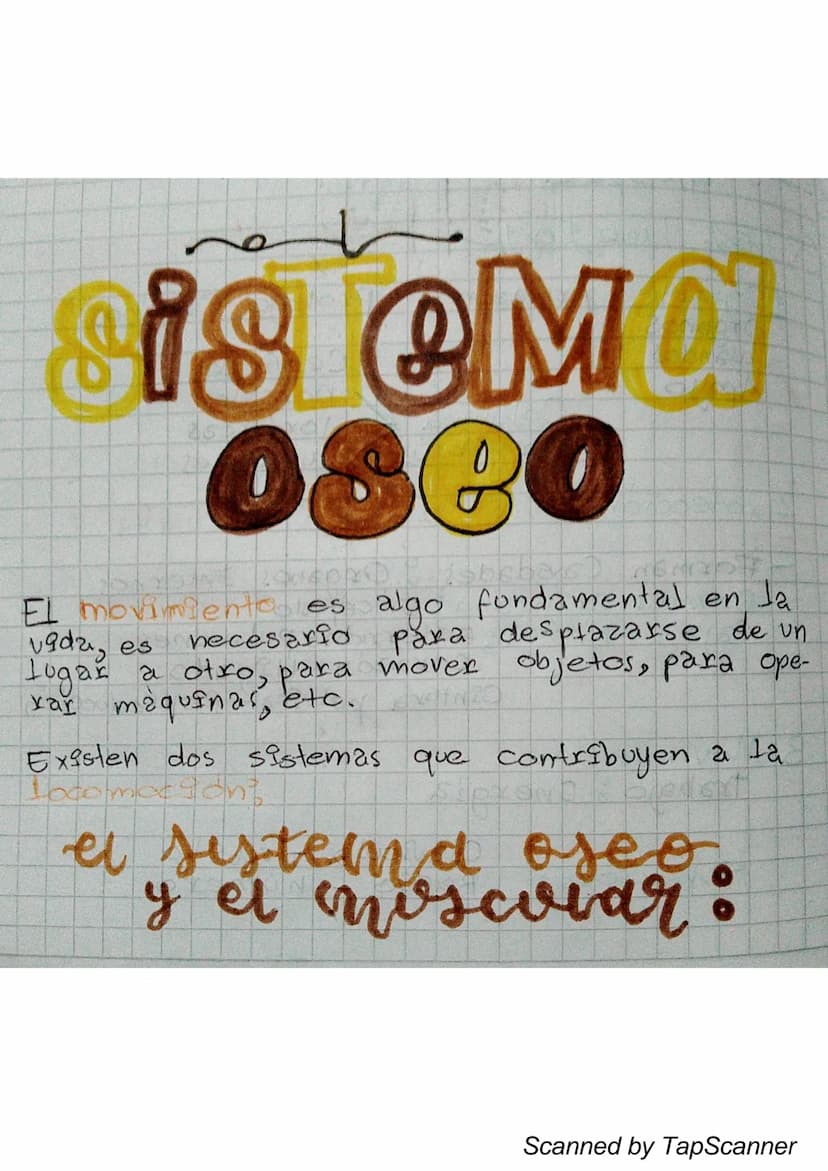 SISTEMA
OSEO
El movimiento es algo fundamental en la
vida, es necesario para desplazarse de un
lugar a otro, para mover objetos, para ope-
rar màquinas, etc.
Existen dos sistemas que contribuyen a la
locomoción;
el sistema oseo
y el muscular:
Scanned by TapScanner